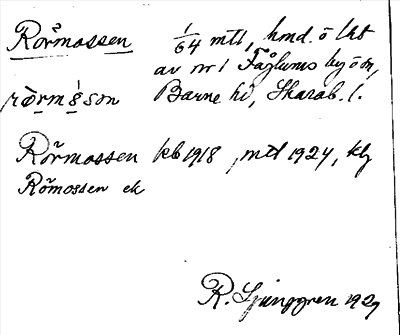 Rörmossen 1/64 mtl, hmd. o lht
av nr 1 Fåglums by o sn,
rö̀rmǫ́son Barne hd, Skarab. l.
Rörmossen kb 1918, mtl 1924, klg
Römossen ek
R. Ljunggren 1929